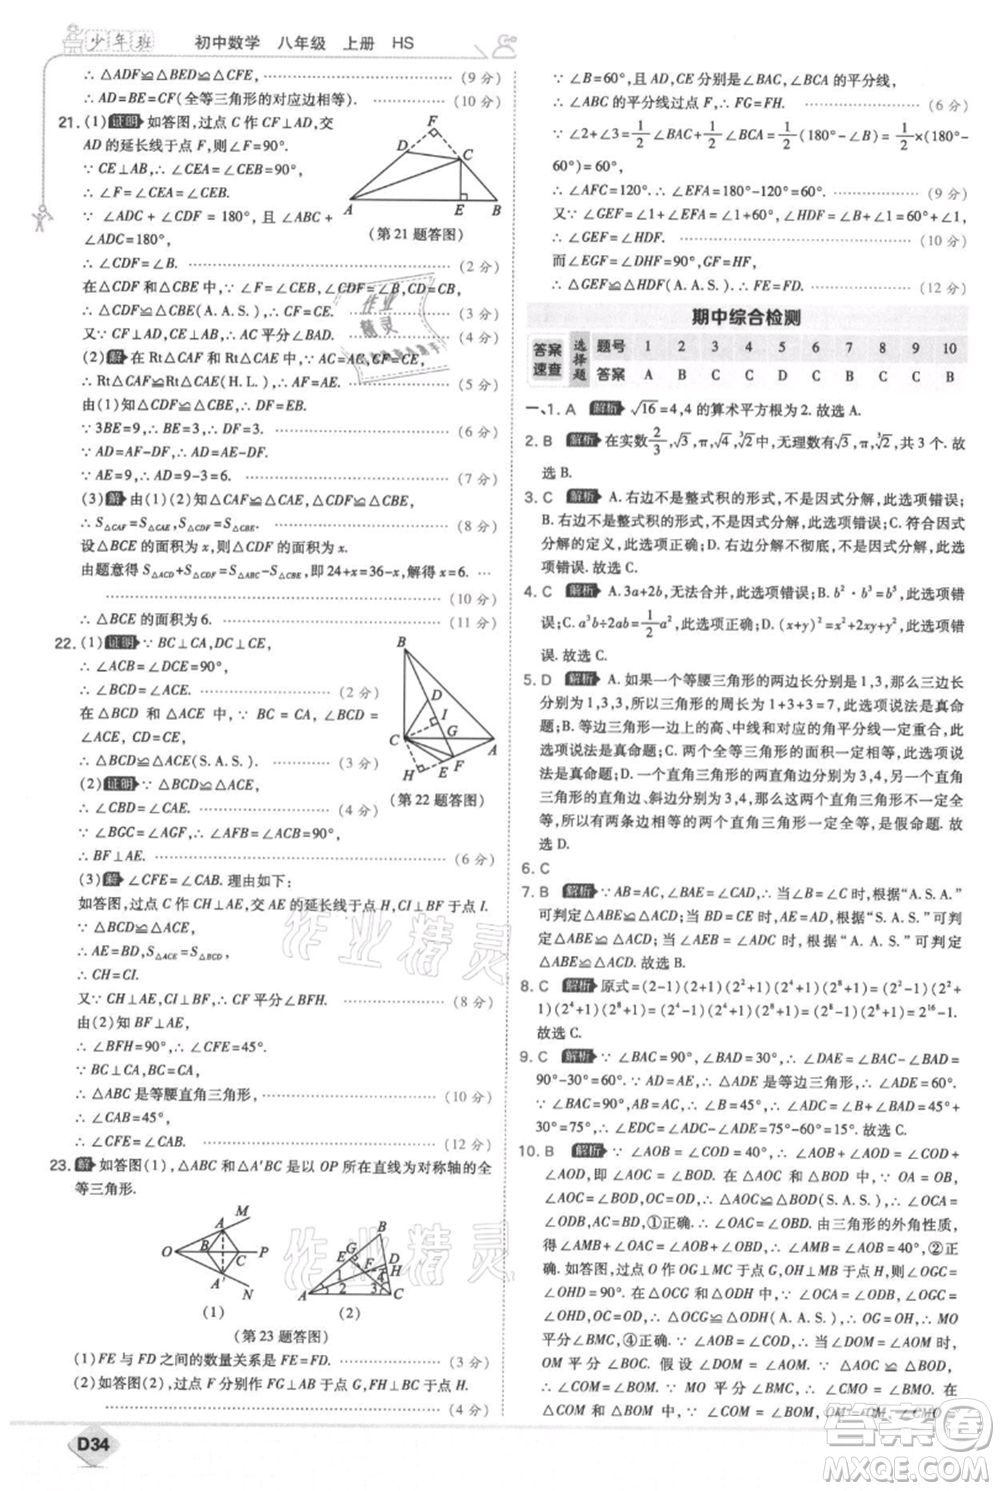 少年班 初中数学 八年级 上册 HS
∴ △ADF≌△BED≌△CFE, (9分)
∴ AD=BE=CF(全等三角形的对应边相等). (10分)
21. (1)证明 如答图,过点 C 作 CF⊥AD,交
AD 的延长线于点 F,则∠F=90°.
∵ CE⊥AB,∴ ∠CEA=90°,
∴ ∠F=∠CEA=∠CEB=90°.
∵ ∠ADC + ∠CDF = 180°, 且 ∠B +
∠ADC=180°,
∴ ∠CDF=∠B. (2分)
在△CDF 和△CBE 中,∵ ∠F=∠CEB,∠CDF=∠B,CF=CE,
∴ △CDF≌△CBE(A.A.S.),∴ CD=CB. (3分)
又∵ CF⊥AD,CE⊥AB,∴ AC 平分∠BAD. (4分)
(2)解 在 Rt△CAF 和 Rt△CAE 中,∵ CF=CE,AC=AC,
∴ Rt△CAF≌Rt△CAE(H.L.),∴ AF=AE. (5分)
由(1)知△CDF≌△CBE,∴ BE=DF.
∵ 3BE=9,∴ BE=3,∴ DF=3. (6分)
∵ AD=AF-DF,∴ AD=AE-DF.
∵ AE=9,∴ AD=9-3=6. (7分)
(3)解 由(1)(2)知△CAF≌△CAE,△CDF≌△CBE,
∴ S△CAF=S△CAE,S△CDF=S△CBE. (8分)
设△BCE 的面积为 x,则△CDF 的面积为 x.
由题意得 S△ACD+S△CDF=S△ABC-S△CBE,即 24+x=36-x,解得 x=6.
(10分)
∴ △BCE 的面积为 6. (11分)
A B C D E F
(第 21 题答图)
22. (1)证明 ∵ BC⊥CA,DC⊥CE,
∴ ∠ACB=∠DCE=90°,
∴ ∠BCD=∠ACE. (2分)
在△BCD 和△ACE 中,∵ BC = CA,
∠BCD=∠ACE,CD=CE,
∴ △BCD≌△ACE(S.A.S.). (3分)
(2)证明 ∵ △BCD≌△ACE,
∴ ∠CBD=∠CAE. (4分)
∵ ∠BGC=∠AGF,∴ ∠AFB=∠ACB=90°,
∴ BF⊥AE. (6分)
(3)解 ∠CFE=∠CAB. 理由如下:
如答图,过点 C 作 CH⊥AE,交 AE 的延长线于点 H,CI⊥BF 于点 I.
∵ △BCD≌△ACE,
∴ AE=BD,S△ACE=S△BCD,
∴ CH=CI.
又∵ CH⊥AE,CI⊥BF,∴ CF 平分∠BFH. (8分)
由(2)知 BF⊥AE,
∴ ∠BFH=90°,∴ ∠CFE=45°.
∵ BC⊥CA,BC=CA,
∴ △ABC 是等腰直角三角形, (10分)
∴ ∠CAB=45°,
∴ ∠CFE=∠CAB. (12分)
B D I G C A H E F
(第 22 题答图)
23. 解 如答图(1),△ABC 和△A'BC 是以 OP 所在直线为对称轴的全
等三角形.
O A B C P M A' N
(1)
A B C D E F G H 1 2 3 4
(2)
(第 23 题答图)
(1)FE 与 FD 之间的数量关系是 FE=FD. (3分)
(2)如答图(2),过点 F 分别作 FG⊥AB 于点 G,FH⊥BC 于点 H.
(4分)
D34
∵ ∠B=60°,且 AD,CE 分别是∠BAC,∠BCA 的平分线,
∴ ∠ABC 的平分线过点 F,∴ FG=FH. (6分)
∵ ∠2+∠3=1/2∠BAC+1/2∠BCA=1/2(180°-∠B)=1/2×(180°-
60°)=60°,
∴ ∠AFC=120°.∴ ∠CFD=180°-120°=60°. (9分)
又∵ ∠GEF=∠BAC+∠3=60°+∠1,∠HDF=∠B+∠1=60°+∠1,
∴ ∠GEF=∠HDF. (10分)
而∠GEF=∠DHF=90°,GF=HF,
∴ △GEF≌△HDF(A.A.S.).∴ FE=FD. (12分)
期中综合检测
答案速查 选择题 题号 1 2 3 4 5 6 7 8 9 10
答案 A B C C D C B C C B
一、1. A 解析 √16=4,4 的算术平方根为 2. 故选 A.
2. B 解析 在实数2/3,√3,√4,∛2中,无理数有√3,∛2,共 3 个. 故
选 B.
3. C 解析 A. 右边不是整式积的形式,不是因式分解,此选项错误;
B. 右边不是整式积的形式,不是因式分解,此选项错误;C. 符合因式
分解的定义,此选项正确;D. 分解不彻底,不是因式分解,此选项错
误. 故选 C.
4. C 解析 A. 3a+2b,无法合并,此选项错误;B. b²·b³=b⁵,此选项错
误;C. a³b÷2ab=1/2a²,此选项正确;D. (x+y)²=x²+2xy+y²,此选项错
误. 故选 C.
5. D 解析 A. 如果一个等腰三角形的两边长分别是 1,3,那么三边长
分别为 1,3,3,则该等腰三角形的周长为 1+3+3=7,选项说法是真命
题;B. 等边三角形一边上的高、中线和对应的角平分线一定重合,此
选项说法是真命题;C. 两个全等三角形的面积一定相等,此选项说
法是真命题;D. 一个直角三角形的两直角边为 3,4,另一个直角三角
形的直角边、斜边分别为 3,4,那么这两个直角三角形一定不会全
等,所以有两条边相等的两个直角三角形一定全等,是假命题. 故
选 D.
6. C
7. B 解析 ∵ AB=AC,∠BAE=∠CAD,∴ 当∠B=∠C 时,根据“A.S.A.”
可判定△ABE≌△ACD;当∠AEB=∠ADC 时,根据“A.A.S.”可判定
△ABE≌△ACD. 故选 B.
8. C 解析 原式=(2-1)(2+1)(2²+1)(2⁴+1)(2⁸+1)=(2²-1)(2²+
1)(2⁴+1)(2⁸+1)=(2⁴-1)(2⁴+1)(2⁸+1)=(2⁸-1)(2⁸+1)=2¹⁶-1.
故选 C.
9. C 解析 ∵ ∠BAC=90°,∠BAD=30°,∴ ∠DAE=∠BAC-∠BAD=
90°-30°=60°. ∵ AD=AE,∴ △ADE 是等边三角形,∴ ∠ADE=60°.
∵ AB=AC,∠BAC=90°,∴ ∠B=45°,∴ ∠ADC=∠B+∠BAD=45°+
30°=75°,∴ ∠EDC=∠ADC-∠ADE=75°-60°=15°. 故选 C.
10. B 解析 ∵ ∠AOB = ∠COD = 40°, ∴ ∠AOB + ∠AOD = ∠COD +
∠AOD,即∠AOC=∠BOD. 在△AOC 和△BOD 中,∵ OA = OB,
∠AOC=∠BOD,OC=OD,∴ △AOC≌△BOD(S.A.S.),∴ ∠OCA=
∠ODB,AC=BD,①正确;∴ ∠OAC=∠OBD. 由三角形的外角性质,得
∠AMB+∠OAC=∠AOB+∠OBD,∴ ∠AMB=∠AOB=40°,②正确;
如答图,过点 O 作 OG⊥MC 于点 G,OH⊥MB 于点 H,则∠OGC=
∠OHD=90°. ∵ △AOC≌△BOD,∴ ∠OCA=∠ODB. ∵ OC=OD,
∴ △OCG≌△ODH(A.A.S.),∴ OG=OH,∴ MO
平分∠BMC,④正确. ∵ ∠AOB = ∠COD,∴ 当∠DOM=∠AOM 时,
OM 平分∠BOC. 假设∠DOM = ∠AOM. ∵ △AOC≌△BOD,
∴ ∠COM=∠BOM. ∵ MO 平分∠BMC,∴ ∠CMO=∠BMO,